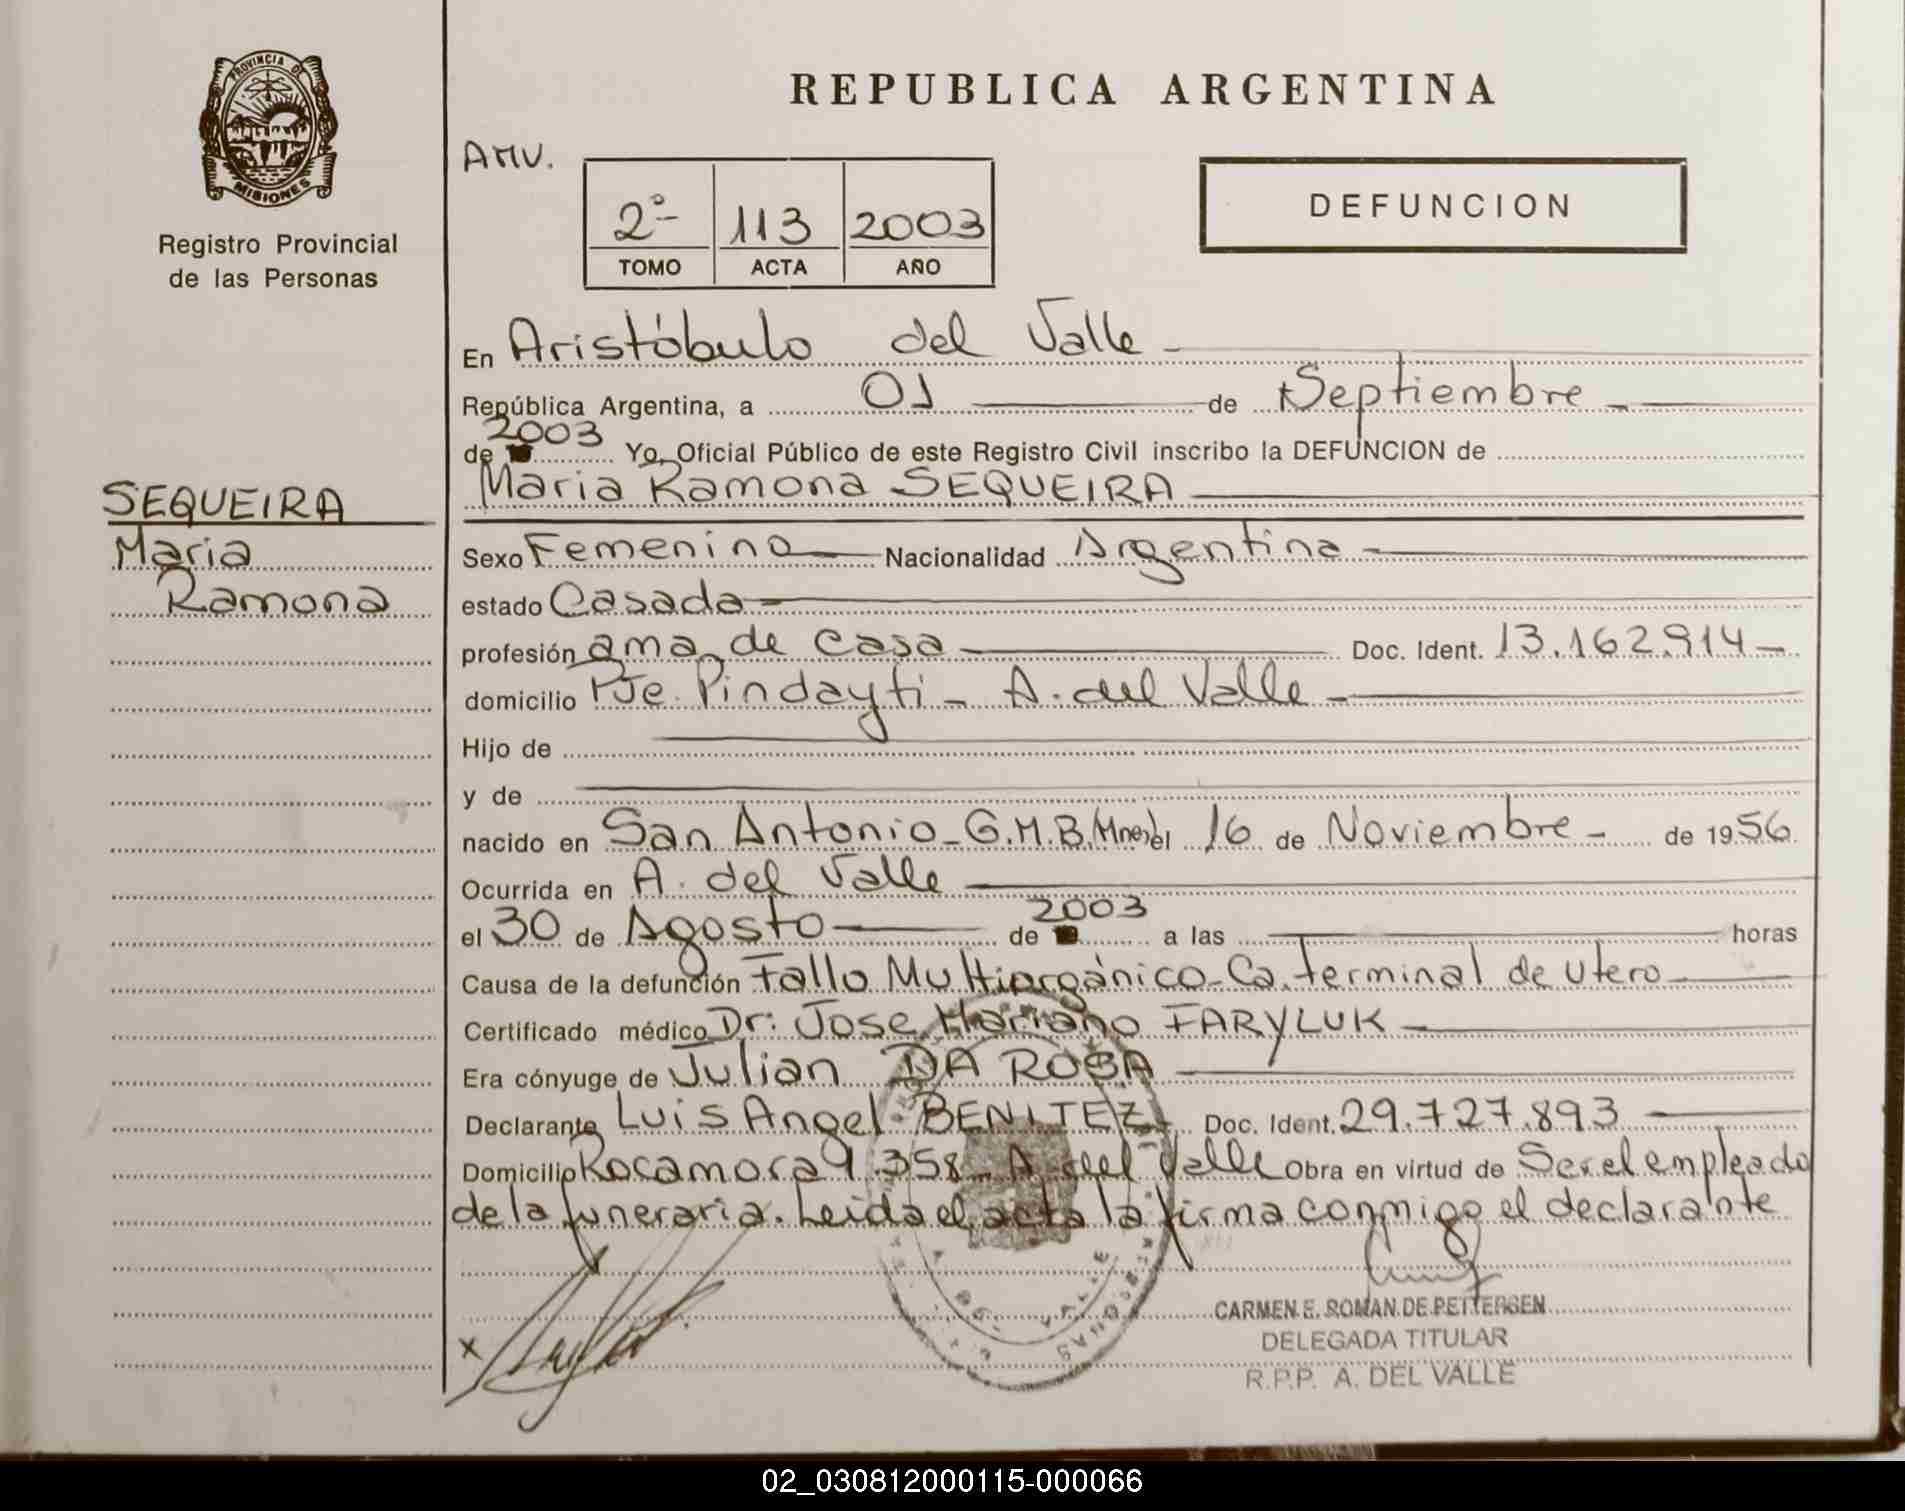 PROVINCIA DE
MISIONES
Registro Provincial
de las Personas
SEQUEIRA
Maria
Ramona
REPUBLICA ARGENTINA
AMV.
2º 113 2003
TOMO ACTA AÑO
DEFUNCION
En Aristóbulo del Valle
República Argentina, a 01 de Septiembre
de 2003 Yo, Oficial Público de este Registro Civil inscribo la DEFUNCION de
Maria Ramona SEQUEIRA
Sexo Femenino Nacionalidad Argentina
estado Casada
profesión ama de casa Doc. Ident. 13.162.914
domicilio Pje. Pindayti - A. del Valle
Hijo de
y de
nacido en San Antonio - G.M.B.(Mnes) el 16 de Noviembre de 1956
Ocurrida en A. del Valle
el 30 de Agosto de 2003 a las horas
Causa de la defunción Fallo Multiorgánico - Ca. terminal de utero
Certificado médico Dr: Jose Mariano FARYLUK
Era cónyuge de Julian DA ROSA
Declarante Luis Angel BENITEZ Doc. Ident. 29.727.893
Domicilio Rocamora 358 - A. del Valle Obra en virtud de Ser el empleado
de la funeraria. Leida el acta la firma conmigo el declarante
X
CARMEN E. ROMAN DE PETTERSEN
DELEGADA TITULAR
R.P.P. A. DEL VALLE
02_030812000115-000066